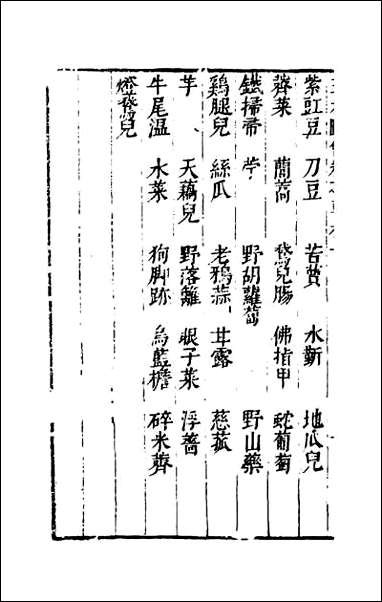 紫豇豆　刀豆　苦蕒　水靳　地瓜兒
薺菜　䕞蒿　猪兒腸　佛指甲　蛇葡萄
鐵掃帚　苧　野胡蘿蔔　野山藥
鷄腿兒　絲瓜　老鴉蒜　甘露　慈菰
芋　天藕兒　野落籬　眼子菜　浮薔
牛尾温　水菜　狗脚跡　烏藍檐　碎米薺
燈蛾兒